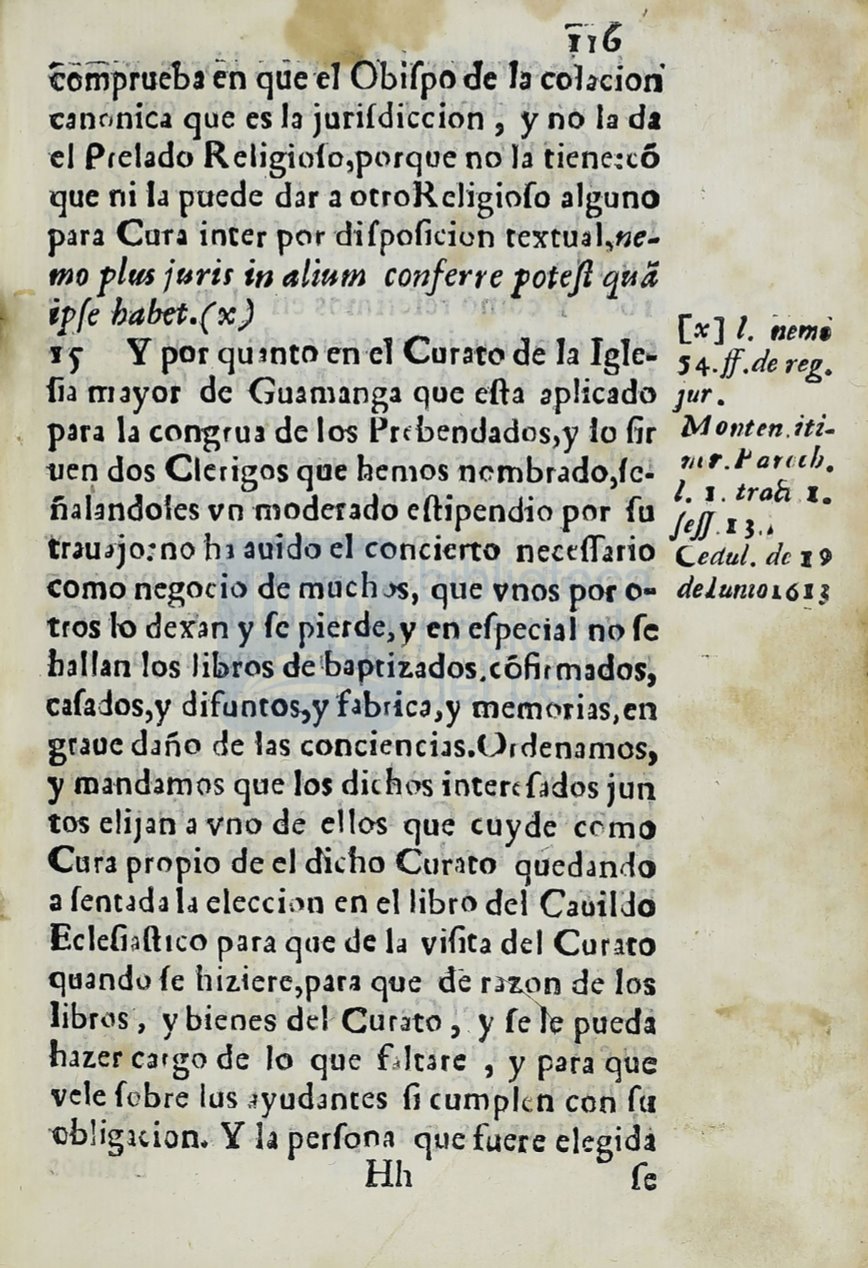 116
comprueba en que el Obiſpo de la colacion
canonica que es la juriſdiccion , y no la da
el Prelado Religioſo,porque no la tiene:cō
que ni la puede dar a otroReligioſo alguno
para Cura inter por diſpoſicion textual,ne-
mo plus juris in alium conferre poteſt quā
ipſe habet.(x)
15 Y por quanto en el Curato de la Igle-
ſia mayor de Guamanga que eſta aplicado
para la congrua de los Prebendados,y lo ſir
uen dos Clerigos que hemos nombrado,ſe-
ñalandoles vn moderado eſtipendio por ſu
trauajo:no ha auido el concierto neceſſario
como negocio de muchos, que vnos por o-
tros lo dexan y ſe pierde,y en eſpecial no ſe
hallan los libros de baptizados,cōfirmados,
caſados,y difuntos,y fabrica,y memorias,en
graue daño de las conciencias.Ordenamos,
y mandamos que los dichos intereſados jun
tos elijan a vno de ellos que cuyde como
Cura propio de el dicho Curato quedando
a ſentada la eleccion en el libro del Cauildo
Ecleſiaſtico para que de la viſita del Curato
quando ſe hiziere,para que de razon de los
libros , y bienes del Curato , y ſe le pueda
hazer cargo de lo que faltare , y para que
vele ſobre los ayudantes ſi cumplen con ſu
obligacion. Y la perſona que fuere elegida
Hh ſe
[x] l. nemo
54.ff.de reg.
jur.
Monten.iti-
ner.Paroch.
l. 1. tract 1.
ſeſſ.13.
Cedul. de 19
deIunio1613